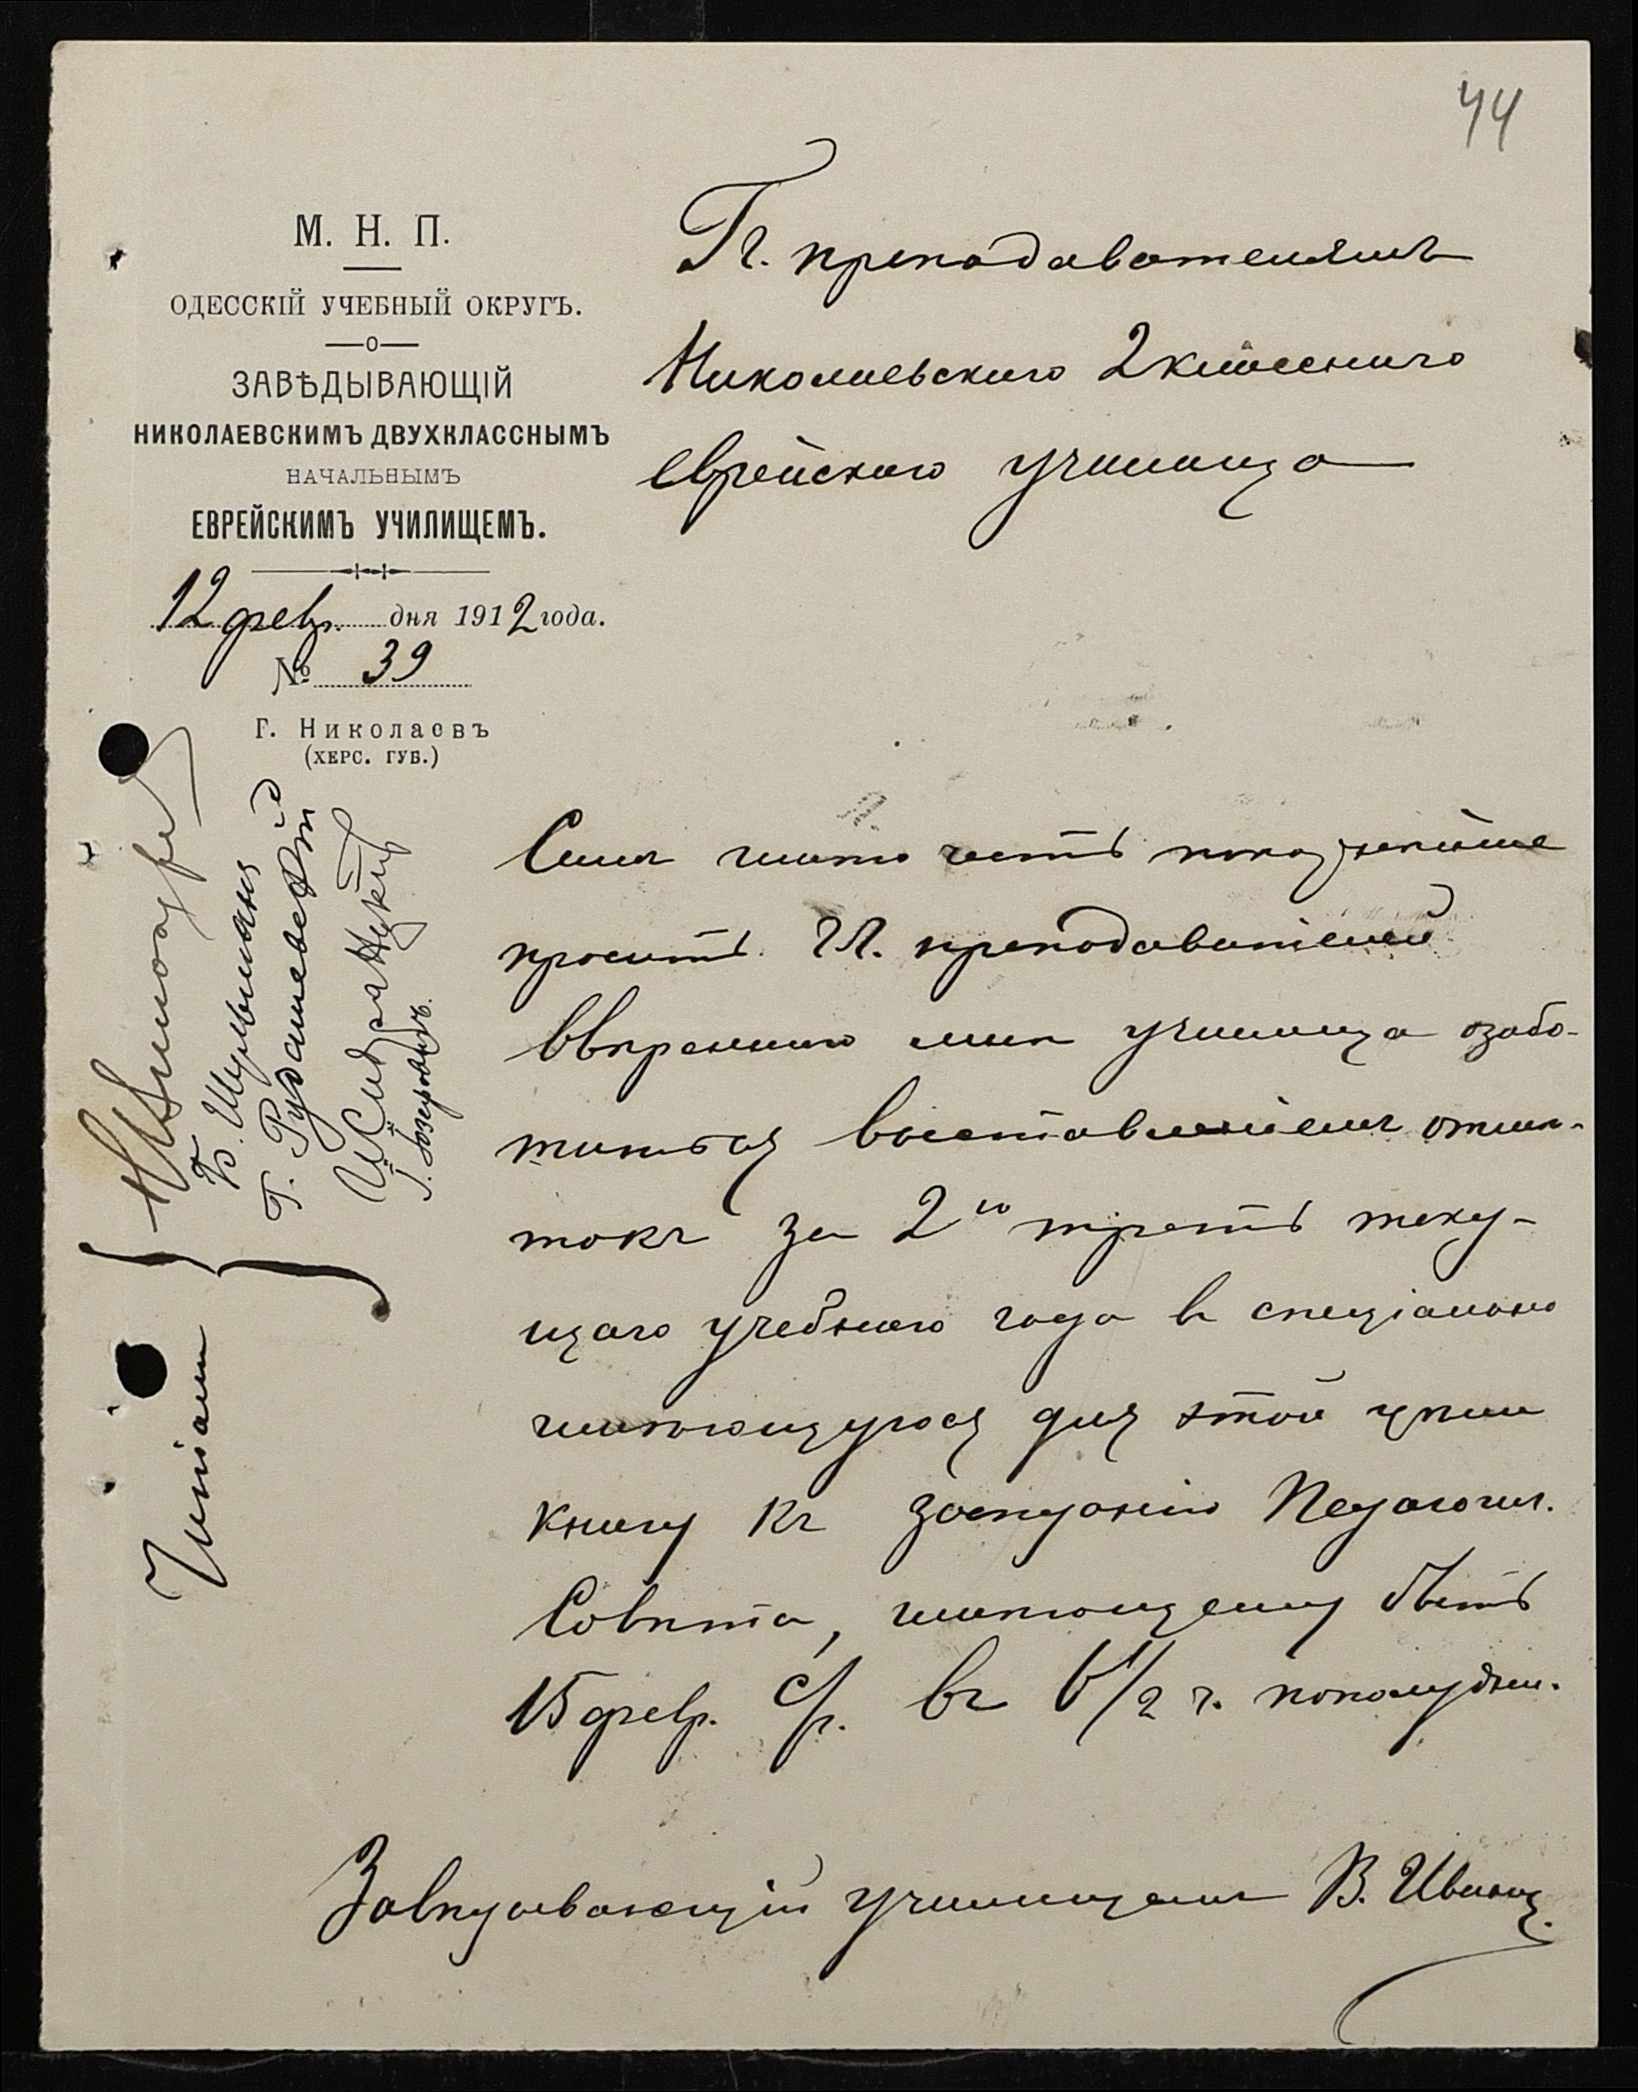 44
М. Н. П.
ОДЕССКІЙ УЧЕБНЫЙ ОКРУГЪ.
ЗАВѢДЫВАЮЩІЙ
НИКОЛАЕВСКИМЪ ДВУХКЛАССНЫМЪ
НАЧАЛЬНЫМЪ
ЕВРЕЙСКИМЪ УЧИЛИЩЕМЪ.
12 февр. дня 1912 года.
№ 39
Г. Николаевъ
(ХЕРС. ГУБ.)
Гг. преподавателямъ
Николаевскаго 2классного
еврейскаго училища
Симъ имѣю честь покорнѣйше
просить Гг. преподавателей
ввѣреннаго мнѣ училища озабо-
титься выставленіемъ отмѣ-
токъ за 2ю треть теку-
щаго учебнаго года въ спеціально
имѣющуюся для этой цѣли
книгу къ засѣданію Педагогич.
Совѣта, имѣющему быть
15 февр. с/г. въ 6 1/2 ч. пополудни.
Завѣдывающій училищемъ В. Иваниц.
Читали
Б. Шульманъ
Г. Рудашевскій